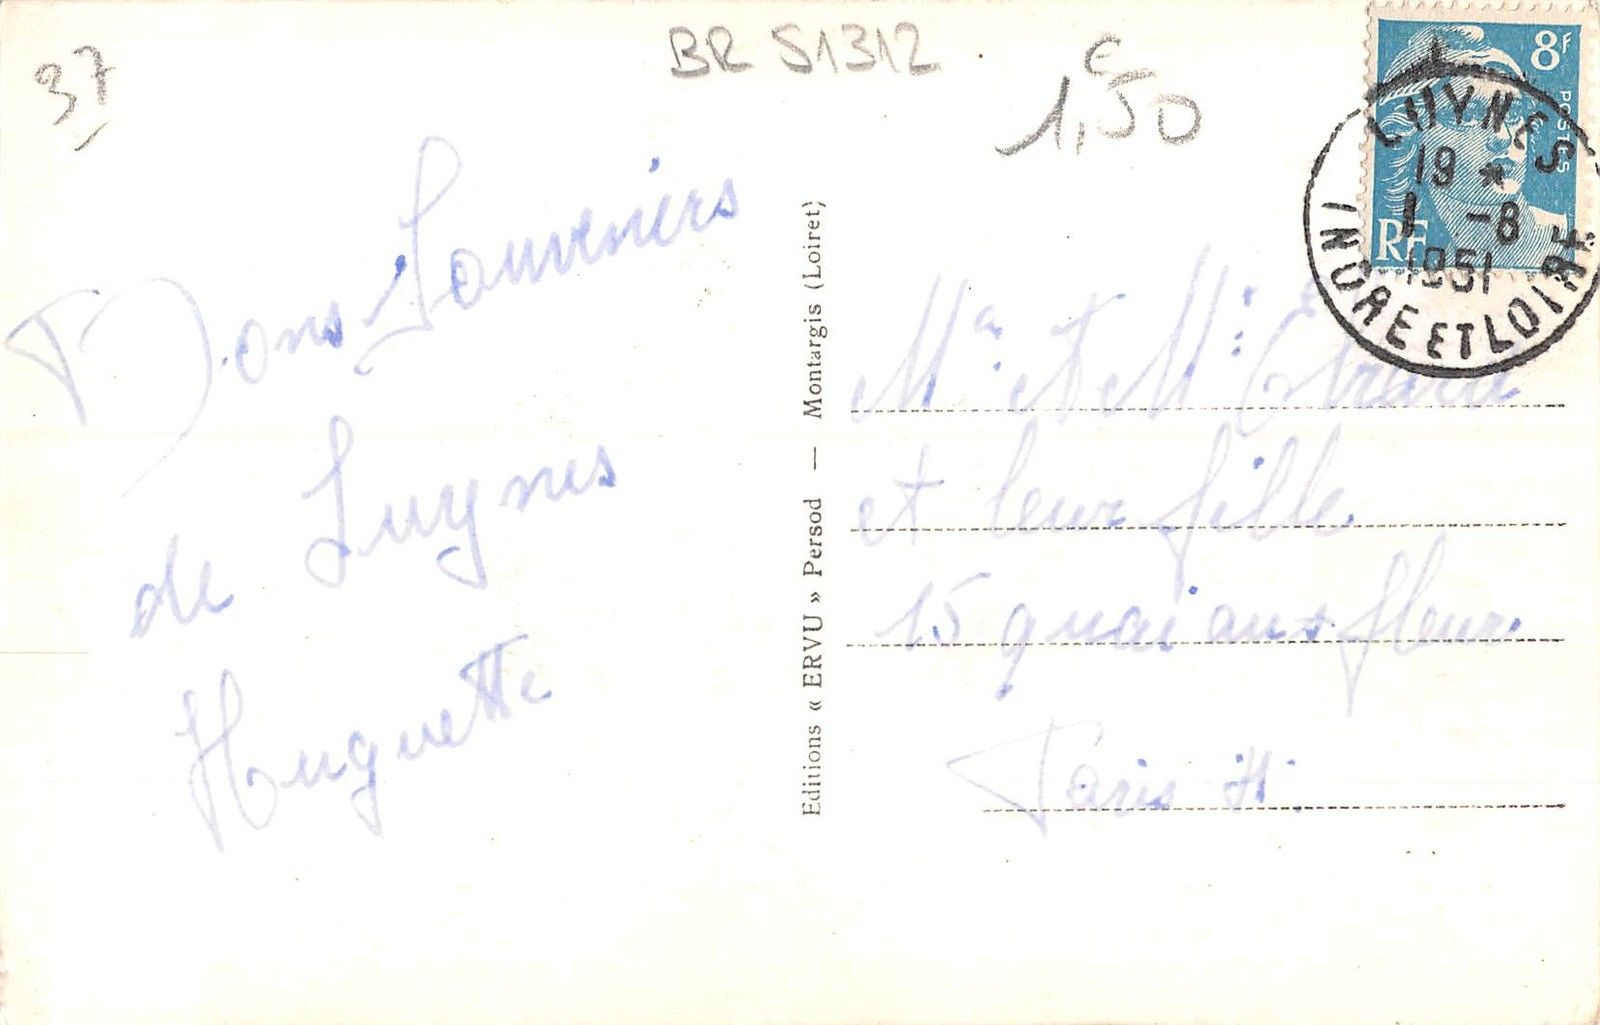 37
BR 51312
€
1,50
8F
POSTES
RF
LUYNES
19 *
1 -8
1951
INDRE ET LOIRE
Bons Souvenirs
de Luynes
Huguette
Editions « ERVU » Persod — Montargis (Loiret)
Mr et Me
et leur fille
15 quai aux fleurs
Paris